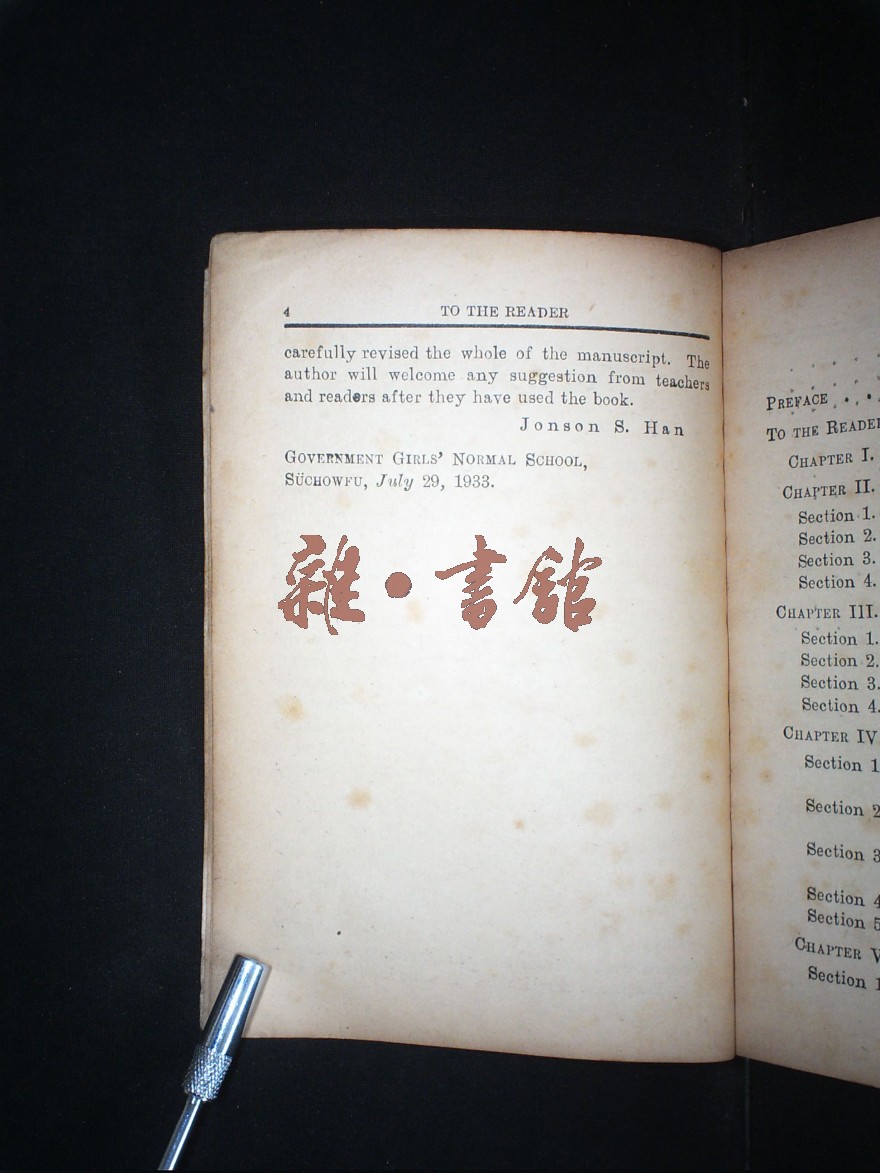 4 TO THE READER
carefully revised the whole of the manuscript. The
author will welcome any suggestion from teachers
and readers after they have used the book.
Jonson S. Han
GOVERNMENT GIRLS' NORMAL SCHOOL,
SÜCHOWFU, July 29, 1933.
雜·書館
PREFACE
TO THE READER
CHAPTER I.
CHAPTER II.
Section 1.
Section 2.
Section 3.
Section 4.
CHAPTER III.
Section 1.
Section 2.
Section 3.
Section 4.
CHAPTER IV
Section 1
Section 2
Section 3
Section 4
Section 5
CHAPTER V
Section 1